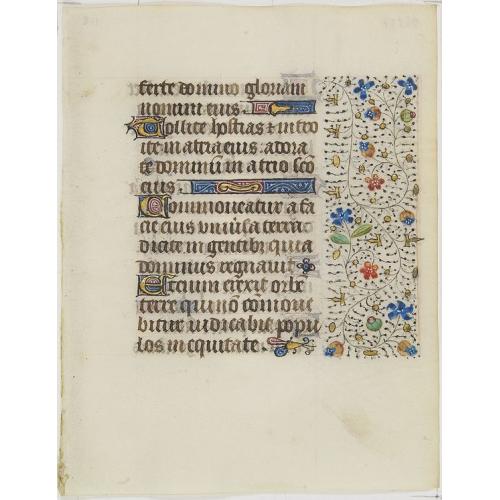 ferte domino gloriam
nomini eius.
Tollite hostias & intro
ite in atria eius: adora
te dominū in atrio sc̄o
eius.
Commoveatur a fa
cie eius universa terra
dicite in gentibz quia
dominus regnavit
Etenim erexit orbē
terre qui nō commove
bitur iudicabit popu
los in equitate.